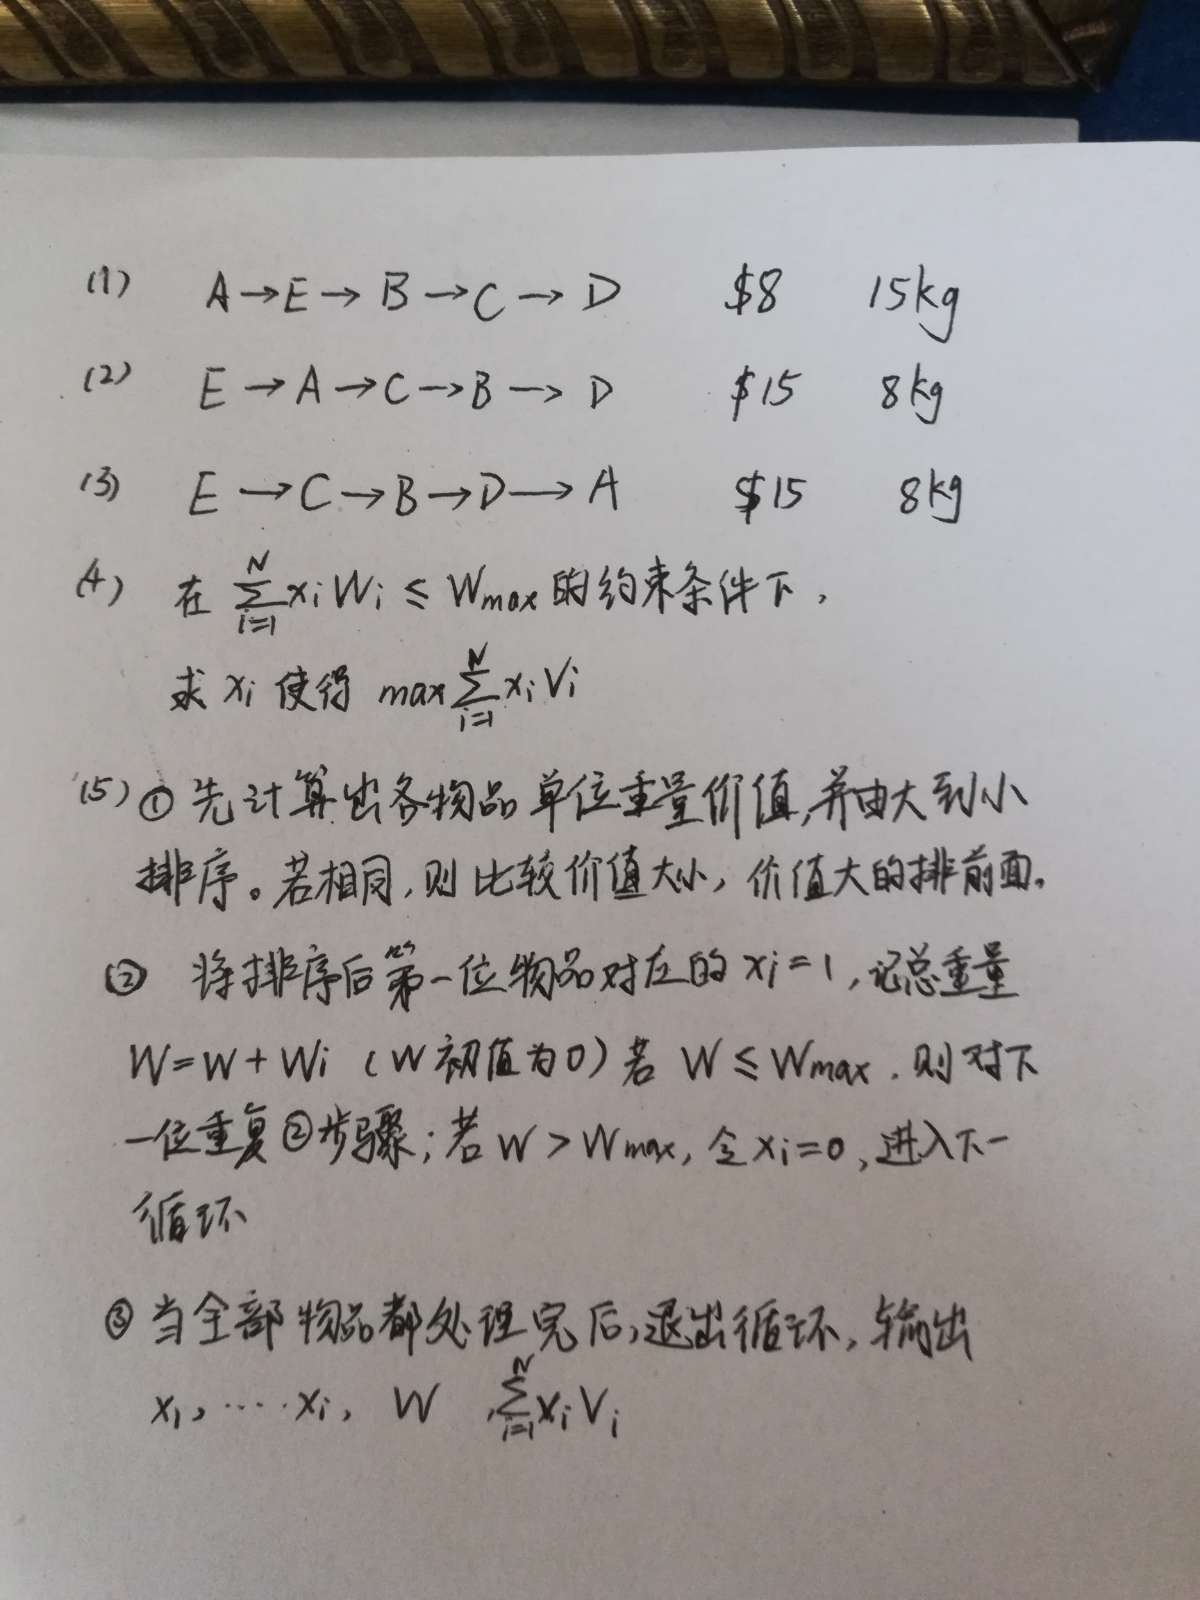 (1) A→E→B→C→D $8 15kg
(2) E→A→C→B→D $15 8kg
(3) E→C→B→D→A $15 8kg
(4) 在 ∑_{i=1}^{N} xiWi ≤ Wmax 的约束条件下,
求 xi 使得 max ∑_{i=1}^{N} xiVi
(5) ① 先计算出各物品单位重量价值,并由大到小
排序。若相同,则比较价值大小,价值大的排前面。
② 将排序后第一位物品对应的 xi=1,记总重量
W=W+Wi (W初值为0) 若 W≤Wmax. 则对下
一位重复②步骤;若W>Wmax,令xi=0,进入下一
循环
③ 当全部物品都处理完后,退出循环,输出
x1,····xi, W ,∑_{i=1}^{N} xiVi